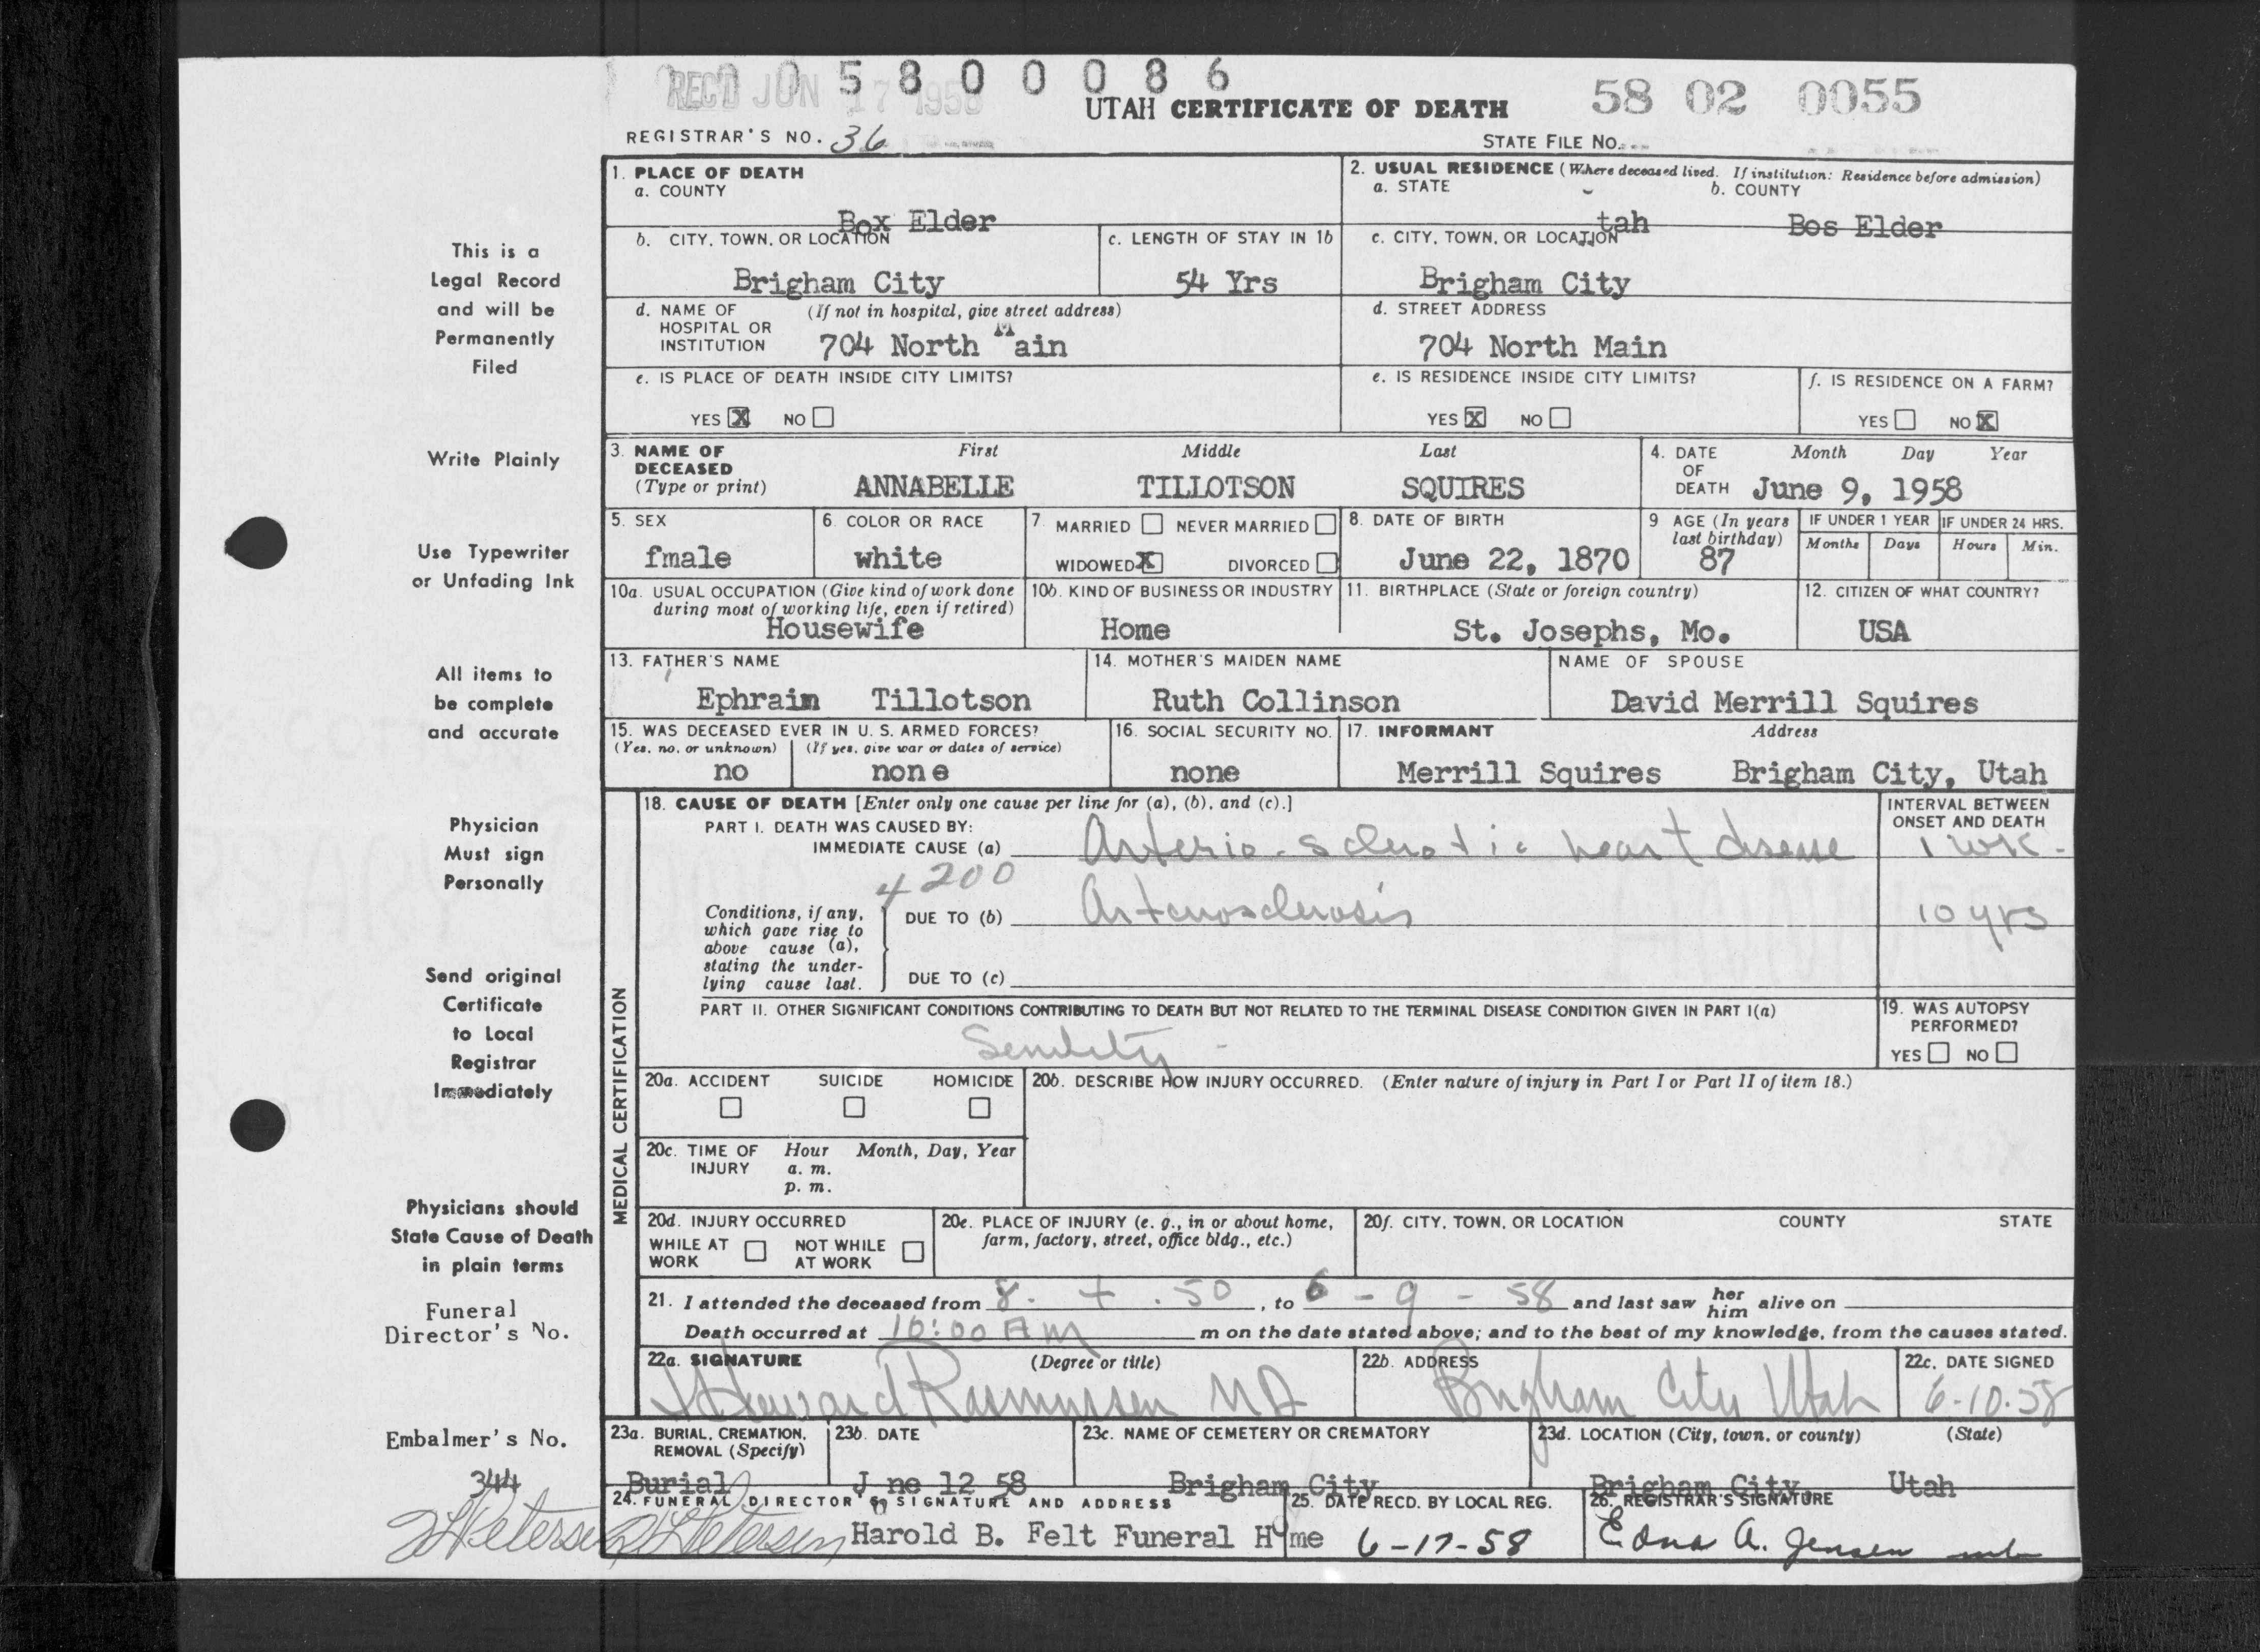 REC'D JUN 17 1958
0 0 5 8 0 0 0 8 6
UTAH CERTIFICATE OF DEATH
58 02 0055
REGISTRAR'S NO. 36
STATE FILE NO.
This is a
Legal Record
and will be
Permanently
Filed
Write Plainly
Use Typewriter
or Unfading Ink
All items to
be complete
and accurate
Physician
Must sign
Personally
Send original
Certificate
to Local
Registrar
Immediately
Physicians should
State Cause of Death
in plain terms
Funeral
Director's No.
Embalmer's No.
344
1. PLACE OF DEATH
a. COUNTY
Box Elder
2. USUAL RESIDENCE (Where deceased lived. If institution: Residence before admission)
a. STATE b. COUNTY
tah Bos Elder
b. CITY, TOWN, OR LOCATION
Brigham City
c. LENGTH OF STAY IN 1b
54 Yrs
c. CITY, TOWN, OR LOCATION
Brigham City
d. NAME OF (If not in hospital, give street address)
HOSPITAL OR
INSTITUTION 704 North Main
d. STREET ADDRESS
704 North Main
e. IS PLACE OF DEATH INSIDE CITY LIMITS?
YES X NO
e. IS RESIDENCE INSIDE CITY LIMITS?
YES X NO
f. IS RESIDENCE ON A FARM?
YES NO X
3. NAME OF First Middle Last
DECEASED
(Type or print) ANNABELLE TILLOTSON SQUIRES
4. DATE Month Day Year
OF
DEATH June 9, 1958
5. SEX
fmale
6. COLOR OR RACE
white
7. MARRIED NEVER MARRIED
WIDOWED X DIVORCED
8. DATE OF BIRTH
June 22, 1870
9 AGE (In years
last birthday)
87
IF UNDER 1 YEAR IF UNDER 24 HRS.
Months Days Hours Min.
10a. USUAL OCCUPATION (Give kind of work done
during most of working life, even if retired)
Housewife
10b. KIND OF BUSINESS OR INDUSTRY
Home
11. BIRTHPLACE (State or foreign country)
St. Josephs, Mo.
12. CITIZEN OF WHAT COUNTRY?
USA
13. FATHER'S NAME
Ephraim Tillotson
14. MOTHER'S MAIDEN NAME
Ruth Collinson
NAME OF SPOUSE
David Merrill Squires
15. WAS DECEASED EVER IN U. S. ARMED FORCES?
(Yes, no, or unknown) (If yes, give war or dates of service)
no none
16. SOCIAL SECURITY NO.
none
17. INFORMANT Address
Merrill Squires Brigham City, Utah
MEDICAL CERTIFICATION
18. CAUSE OF DEATH [Enter only one cause per line for (a), (b), and (c).]
INTERVAL BETWEEN
ONSET AND DEATH
PART I. DEATH WAS CAUSED BY:
IMMEDIATE CAUSE (a) Arterio-sclerotic heart disease 1 wk.
4200
Conditions, if any,
which gave rise to
above cause (a),
stating the under-
lying cause last.
DUE TO (b) Arteriosclerosis 10 yrs
DUE TO (c)
PART II. OTHER SIGNIFICANT CONDITIONS CONTRIBUTING TO DEATH BUT NOT RELATED TO THE TERMINAL DISEASE CONDITION GIVEN IN PART I(a)
Senility -
19. WAS AUTOPSY
PERFORMED?
YES NO
20a. ACCIDENT SUICIDE HOMICIDE
20b. DESCRIBE HOW INJURY OCCURRED. (Enter nature of injury in Part I or Part II of item 18.)
20c. TIME OF Hour Month, Day, Year
INJURY a. m.
p. m.
20d. INJURY OCCURRED
WHILE AT NOT WHILE
WORK AT WORK
20e. PLACE OF INJURY (e. g., in or about home,
farm, factory, street, office bldg., etc.)
20f. CITY, TOWN, OR LOCATION COUNTY STATE
21. I attended the deceased from 8. . 50, to 6 - 9 - 58 and last saw her him alive on
Death occurred at 10:00 AM m on the date stated above; and to the best of my knowledge, from the causes stated.
22a. SIGNATURE (Degree or title)
Howard Rasmussen MD
22b. ADDRESS
Brigham City Utah
22c. DATE SIGNED
6-10-58
23a. BURIAL, CREMATION,
REMOVAL (Specify)
Burial
23b. DATE
J ne 12 58
23c. NAME OF CEMETERY OR CREMATORY
Brigham City
23d. LOCATION (City, town, or county) (State)
Brigham City, Utah
24. FUNERAL DIRECTOR'S SIGNATURE AND ADDRESS
Petersen Petersen Harold B. Felt Funeral Home
25. DATE RECD. BY LOCAL REG.
6-17-58
26. REGISTRAR'S SIGNATURE
Edna A. Jensen